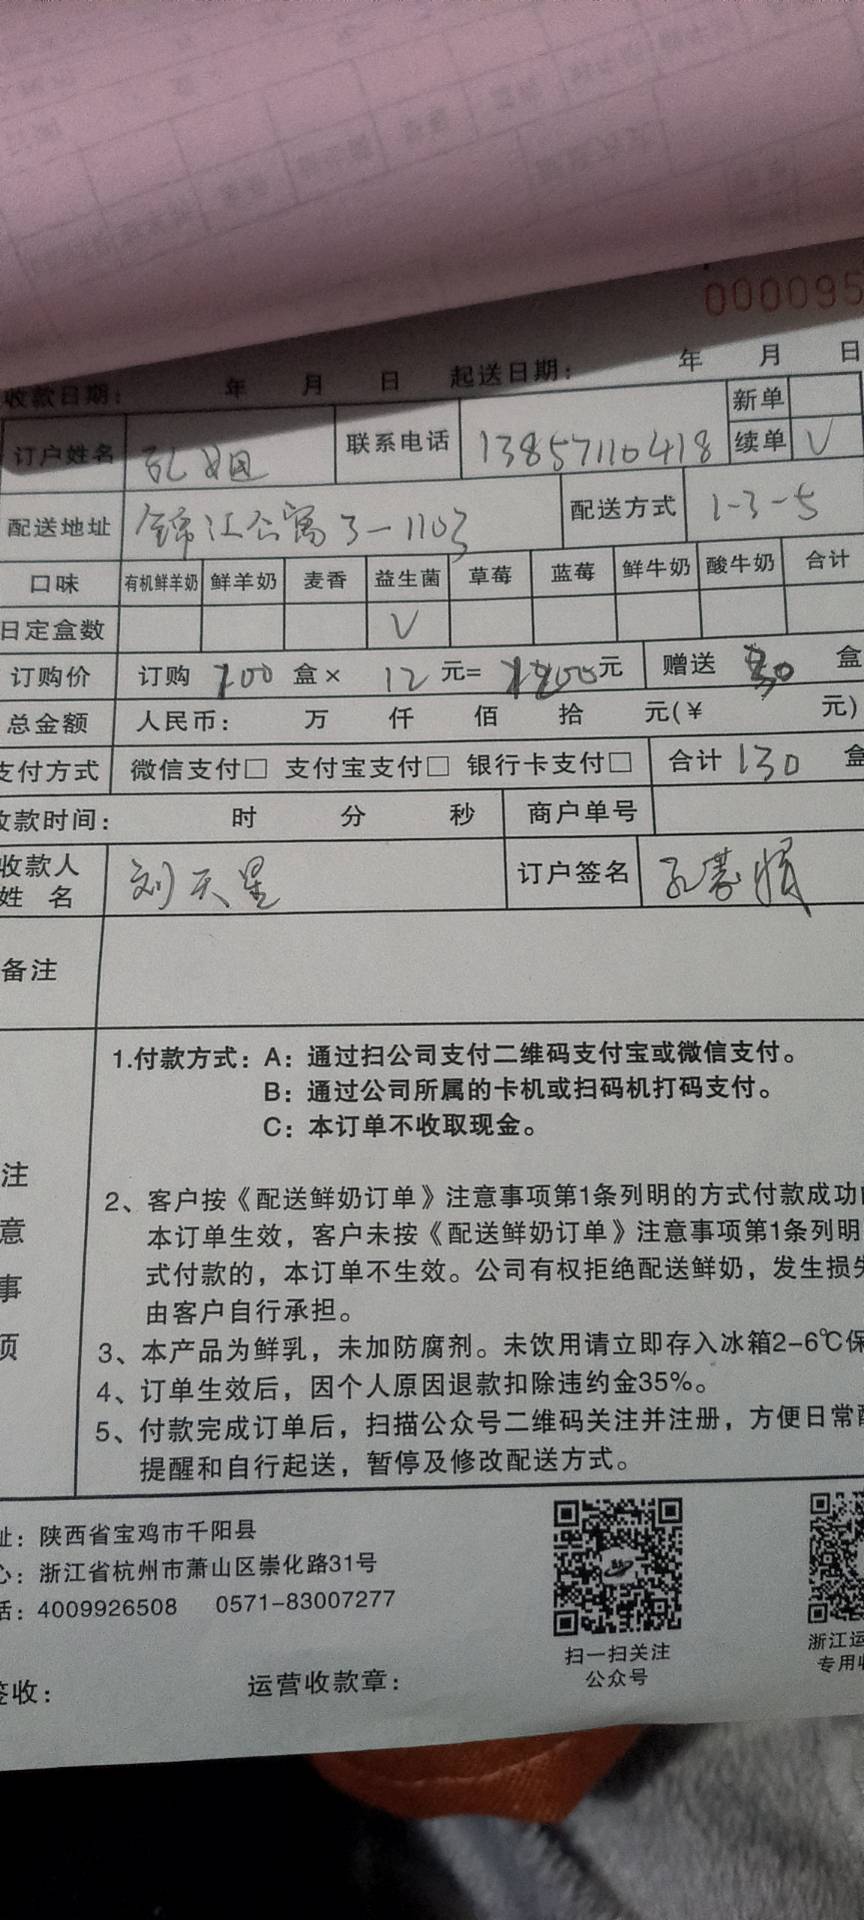 000095
收款日期： 年 月 日 起送日期： 年 月 日
订户姓名 孔姐 联系电话 13857110418 新单
续单 V
配送地址 锦江公寓3-1103 配送方式 1-3-5
口味 有机鲜羊奶 鲜羊奶 麦香 益生菌 草莓 蓝莓 鲜牛奶 酸牛奶 合计
日定盒数 V
订购价 订购 100 盒× 12 元= 1200元 赠送 30 盒
总金额 人民币： 万 仟 佰 拾 元(￥ 元)
支付方式 微信支付□ 支付宝支付□ 银行卡支付□ 合计 130 盒
收款时间： 时 分 秒 商户单号
收款人
姓 名 刘天星 订户签名 孔
备注
注意事项
1.付款方式：A：通过扫公司支付二维码支付宝或微信支付。
B：通过公司所属的卡机或扫码机打码支付。
C：本订单不收取现金。
2、客户按《配送鲜奶订单》注意事项第1条列明的方式付款成功
本订单生效，客户未按《配送鲜奶订单》注意事项第1条列明
式付款的，本订单不生效。公司有权拒绝配送鲜奶，发生损失
由客户自行承担。
3、本产品为鲜乳，未加防腐剂。未饮用请立即存入冰箱2-6℃保
4、订单生效后，因个人原因退款扣除违约金35%。
5、付款完成订单后，扫描公众号二维码关注并注册，方便日常配
提醒和自行起送，暂停及修改配送方式。
址：陕西省宝鸡市千阳县
心：浙江省杭州市萧山区崇化路31号
话：4009926508 0571-83007277
扫一扫关注
公众号
浙江运
专用收
签收： 运营收款章：